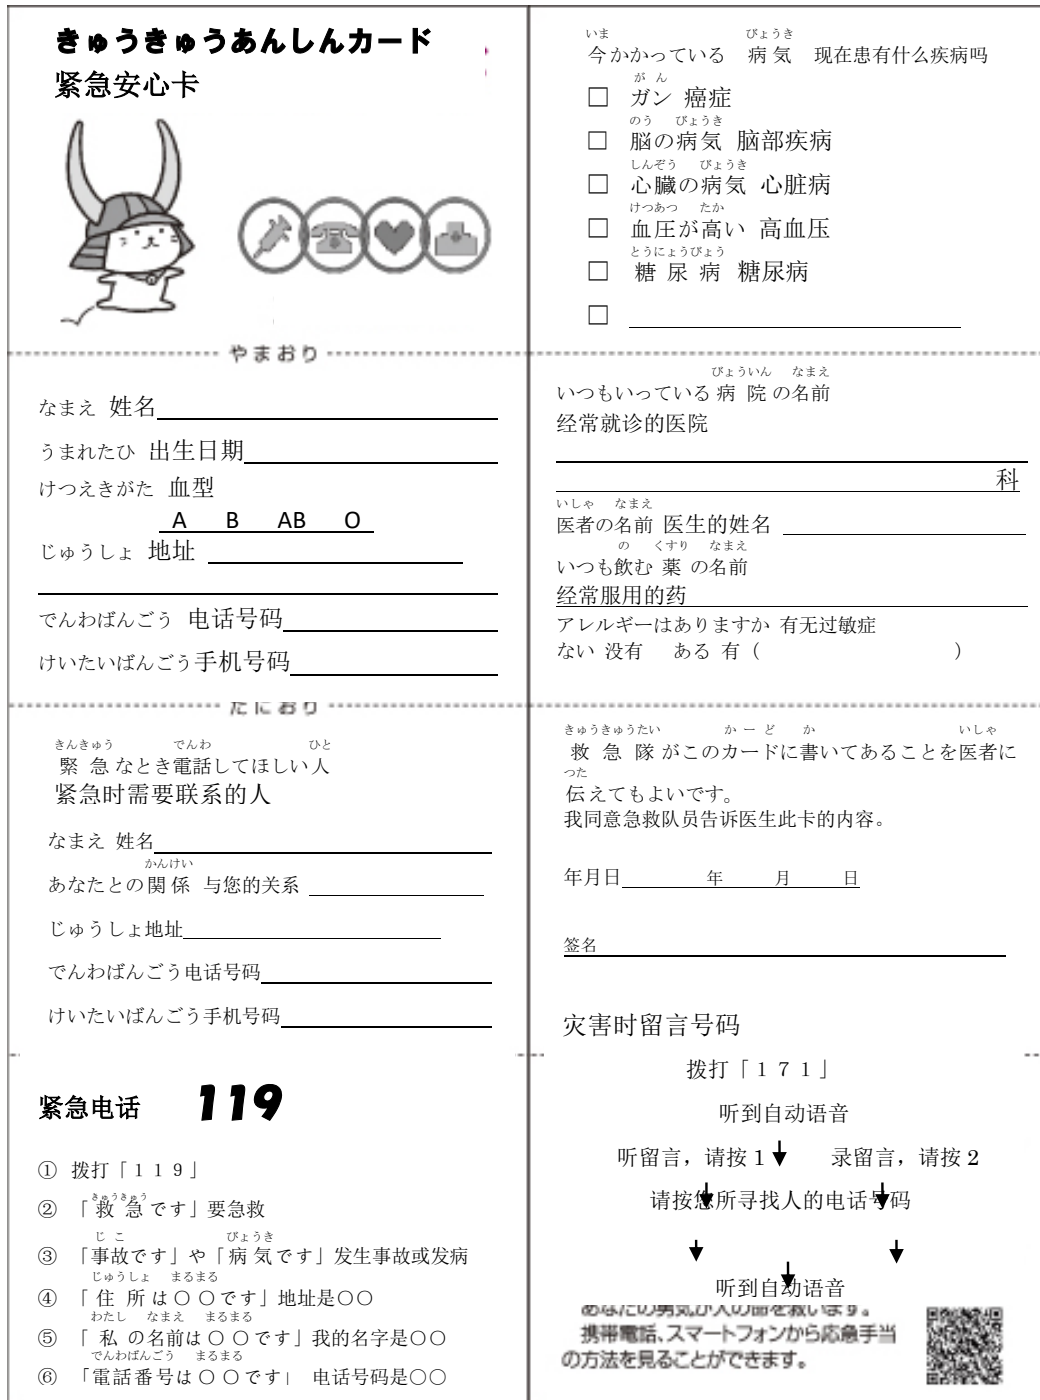 きゅうきゅうあんしんカード
紧急安心卡
やまおり
なまえ 姓名
うまれたひ 出生日期
けつえきがた 血型
A B AB O
じゅうしょ 地址
でんわばんごう 电话号码
けいたいばんごう手机号码
たにおり
きんきゅう でんわ ひと
緊急なとき電話してほしい人
紧急时需要联系的人
なまえ 姓名
かんけい
あなたとの関係 与您的关系
じゅうしょ地址
でんわばんごう电话号码
けいたいばんごう手机号码
紧急电话 119
① 拨打「１１９」
きゅうきゅう
② 「救急です」要急救
じこ びょうき
③ 「事故です」や「病気です」发生事故或发病
じゅうしょ まるまる
④ 「住所は〇〇です」地址是〇〇
わたし なまえ まるまる
⑤ 「私の名前は〇〇です」我的名字是〇〇
でんわばんごう まるまる
⑥ 「電話番号は〇〇です」 电话号码是〇〇
いま びょうき
今かかっている 病気 现在患有什么疾病吗
がん
□ ガン 癌症
のう びょうき
□ 脳の病気 脑部疾病
しんぞう びょうき
□ 心臓の病気 心脏病
けつあつ たか
□ 血圧が高い 高血压
とうにょうびょう
□ 糖尿病 糖尿病
□
びょういん なまえ
いつもいっている病院の名前
经常就诊的医院
科
いしゃ なまえ
医者の名前 医生的姓名
の くすり なまえ
いつも飲む薬の名前
经常服用的药
アレルギーはありますか 有无过敏症
ない 没有 ある 有（ ）
きゅうきゅうたい かーど か いしゃ
救急隊がこのカードに書いてあることを医者に
つた
伝えてもよいです。
我同意急救队员告诉医生此卡的内容。
年月日 年 月 日
签名
灾害时留言号码
拨打「１７１」
听到自动语音
听留言，请按 1 录留言，请按 2
请按您所寻找人的电话号码
听到自动语音
あなたの勇気が人の命を救います。
携帯電話、スマートフォンから応急手当
の方法を見ることができます。